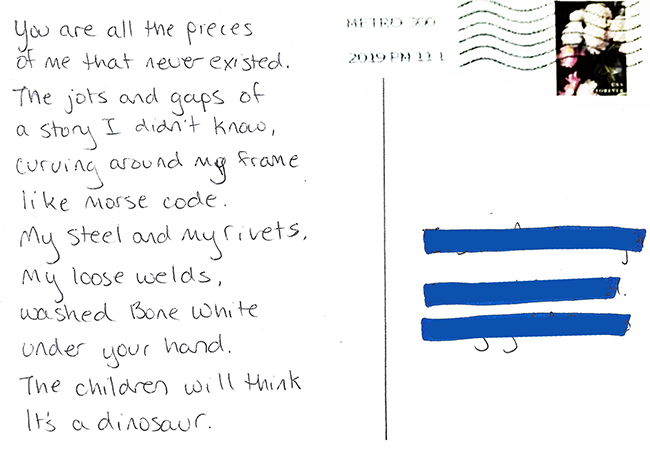 You are all the pieces
of me that never existed.
The jots and gaps of
a story I didn't know,
curving around my frame
like morse code.
My steel and my rivets,
My loose welds,
washed Bone White
under your hand.
The children will think
It's a dinosaur.
METRO 300
2019 PM 11 1
USA
FOREVER